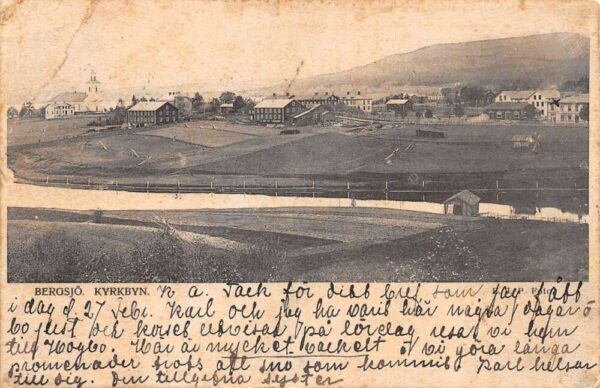 BERGSJÖ. KYRKBYN. K A. Tack för ditt bref som jag fått
i dag d 27 Febr. Karl och jag ha varit här några dagar å
på lördag resa vi hem
till Högbo. Här är mycket vackert å vi göra långa
promenader trots all snö som kommit Karl helsar
till dig. Din tillgifna syster